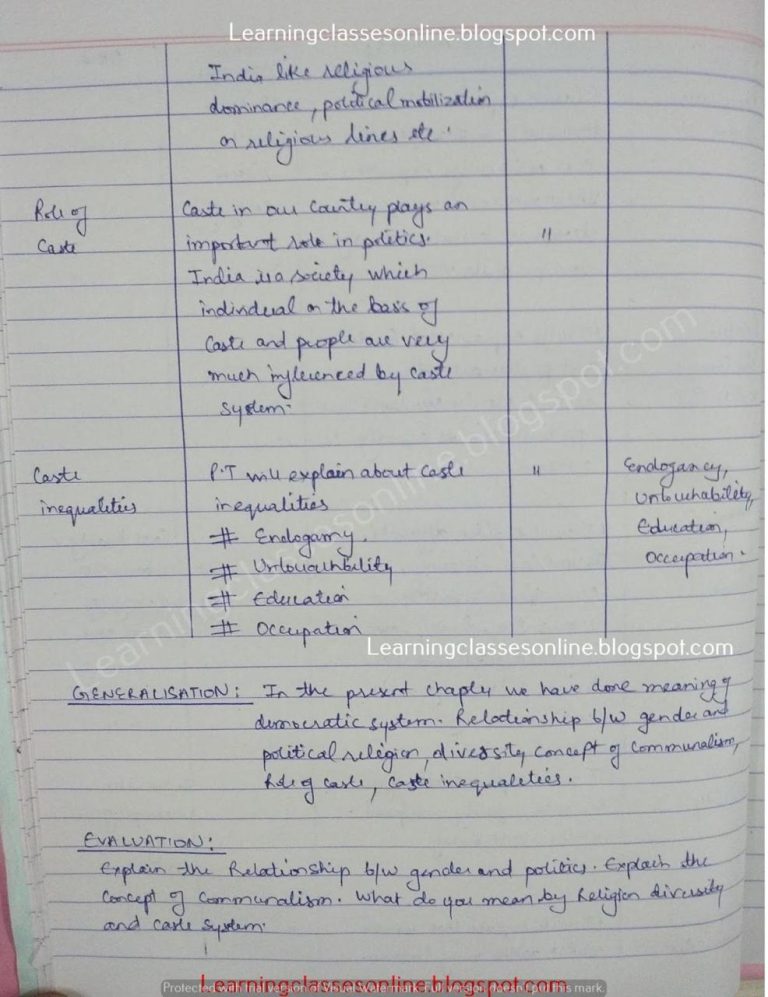 Learningclassesonline.blogspot.com
India like religious
dominance, political mobilization
on religious lines etc.
Role of
Caste
Caste in our Country plays an
important role in politics.
India is a society which
individual on the basis of
Caste and people are very
much influenced by caste
system.
"
Caste
inequalities
P.T will explain about caste
inequalities
# Endogamy.
# Untouchbility
# Education
# Occupation
"
Endogancy,
Untouchability,
Education,
Occupation.
Learningclassesonline.blogspot.com
Learningclassesonline.blogspot.com
GENERALISATION: In the present we have done meaning of
democratic system. Relationship b/w gender and
political religion, diversity concept of communalism,
Role of caste, caste inequalities.
EVALUATION:
Explain the Relationship b/w gender and politics. Explain the
concept of communalism. What do you mean by Religion diversity
and caste system.
Learningclassesonline.blogspot.com
Protected with trial version of Visual Watermark. Full version doesn't put this mark.